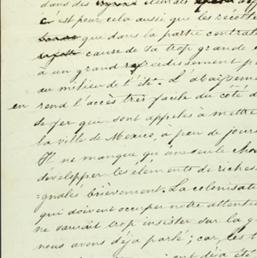 dans des
c'est pour cela aussi que les récoltes
que dans la partie contrai
cause de sa trop grande é
à un grand refroidissement p
au milieu de l'été. L'abaissemen
en rend l'accès très facile du côté d
de fer que sont appelés à mettre
la ville de Mexico, à peu de jours
Il ne manque qu'une seule cho
développer les éléments de riches
gnalés brièvement. La colonisat
qui doivent occuper notre attentio
ne saurait trop insister sur la q
nous avons déjà parlé; car, les t
déjà été